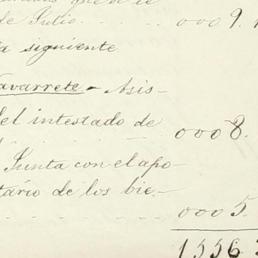 de Julio. . . . . 0009.
siguiente
Navarrete - Asis-
del intestado de
. . . . . . 0008.
Junta con el apo-
tario de los bie-
. . . . . . 0005.
1336